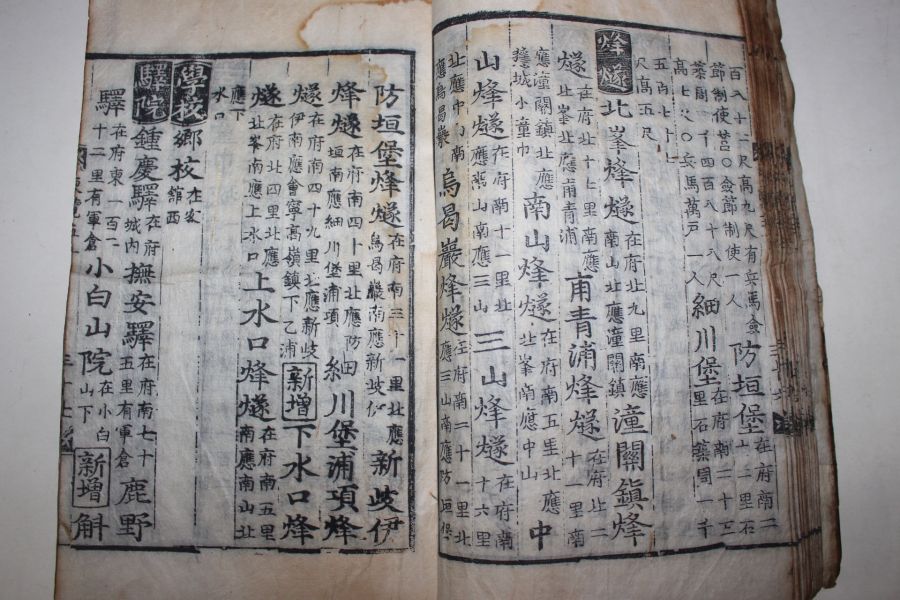 百八十二尺高九尺有兵馬僉節制使營○僉節制使一人防垣堡在府南二十三里石
築周一千四百八十八尺高七尺○兵馬萬戶一人細川堡在府南二十三里石築周一千
五百七十七尺高五尺
烽燧北峯烽燧在府北九里南應南山北應潼關鎮潼關鎮烽
燧在府北十七里南應北峯北應甫青浦甫青浦烽燧在府北二十一里南
應潼關鎮北應城小童巾南山烽燧在府南五里北應北峯南應中山中
山烽燧在府南十一里北應南山南應三山三山烽燧在府南十六里
北應中山南應烏曷巖烏曷巖烽燧在府南二十一里北應三山南應防垣堡
防垣堡烽燧在府南三十一里北應烏曷巖南應新歧伊新歧伊
烽燧在府南四十里北應防垣南應細川堡浦項細川堡浦項烽
燧在府南四十九里北應新歧伊南應會寧高嶺鎮下乙浦新增下水口烽
燧在府北四里北應北峯南應上水口上水口烽燧在府南五里南應南山北
應下水口
學校鄉校在客館西
驛院鍾慶驛在府城內撫安驛在府南七十五里有軍倉鹿野
驛在府東一百二十二里有軍倉小白山院在小白山下新增斛